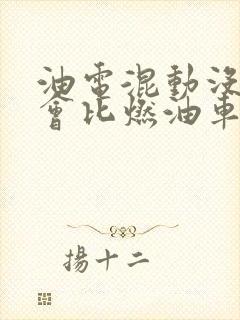 油電混動沒
會比燃油車
揚十二